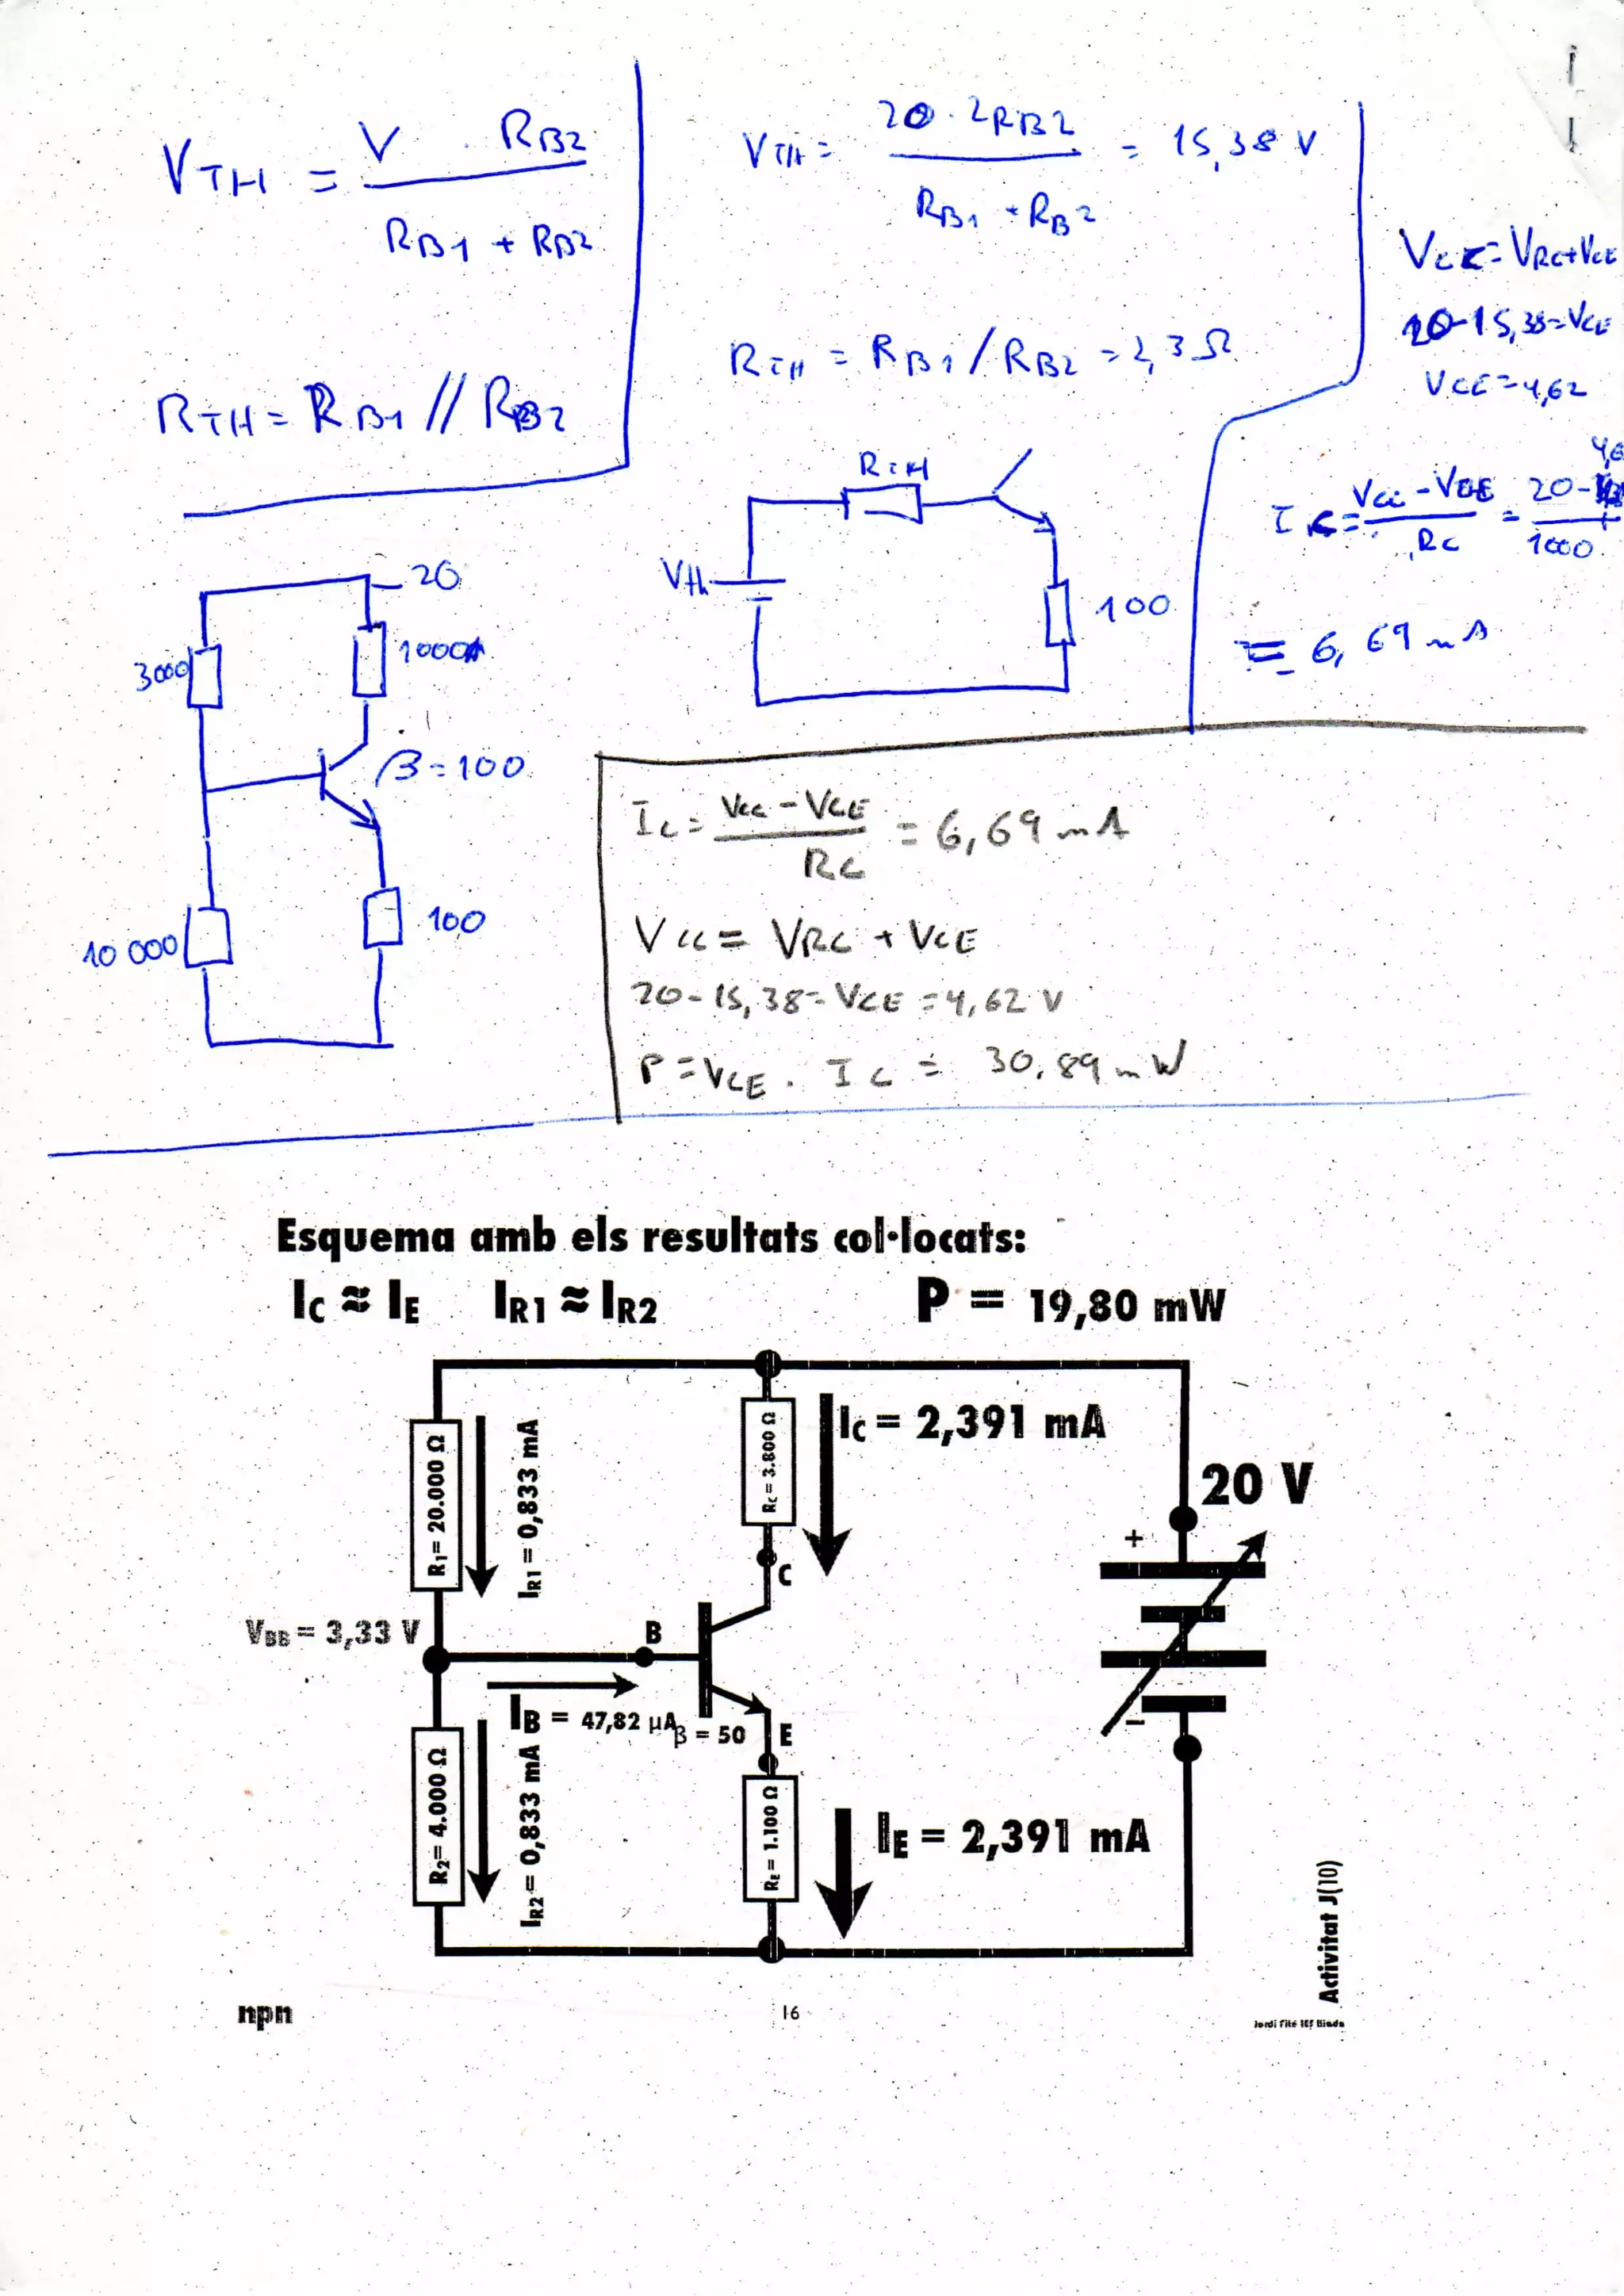 VTH = V . RB2
RB1 + RB2
RTH = RB1 // RB2
VTH = 20 . 2RB2 = 15,38 V
RB1 + RB2
RTH = RB1 / RB2 = 2,3 Ω
VCC = VRC + VCE
20-15,38=VCE
VCE=4,62
IC = VCC - VCE = 20-
RC 1000
= 6,69 mA
RTH
Vth
100
20
3000
1000
β=100
10 000
100
IC = VCC - VCE = 6,69 mA
RC
VCC = VRC + VCE
20-15,38= VCE = 4,62 V
P = VCE . IC = 30,89 mW
Esquema amb els resultats col·locats:
IC ≈ IE IR1 ≈ IR2 P = 19,80 mW
R1= 20.000 Ω
IR1 = 0,833 mA
RC = 3.800 Ω
IC = 2,391 mA
20 V
+
C
VBB = 3,33 V
B
IB = 47,82 µA
β = 50
E
−
R2= 4.000 Ω
IR2= 0,833 mA
RE= 1.100 Ω
IE = 2,391 mA
Activitat J(10)
npn
16
Jordi Fité IES Binda